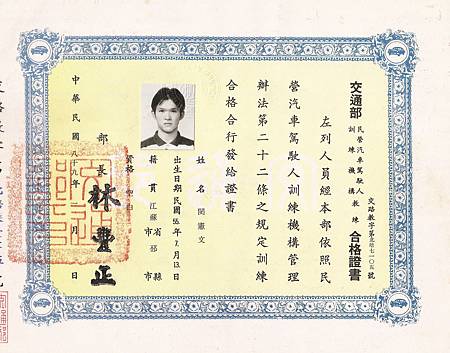 交通部
民營汽車駕駛人
訓練機構教練
合格證書
交路教字第北培七一〇五號
左列人員經本部依照民
營汽車駕駛人訓練機構管理
辦法第二十二條之規定訓練
合格合行發給證書
姓名 閔憲文
出生日期民國56年7月13日
籍貫江蘇省市 縣市
資格
部長 林豐正
中華民國八十九年 一 月 日